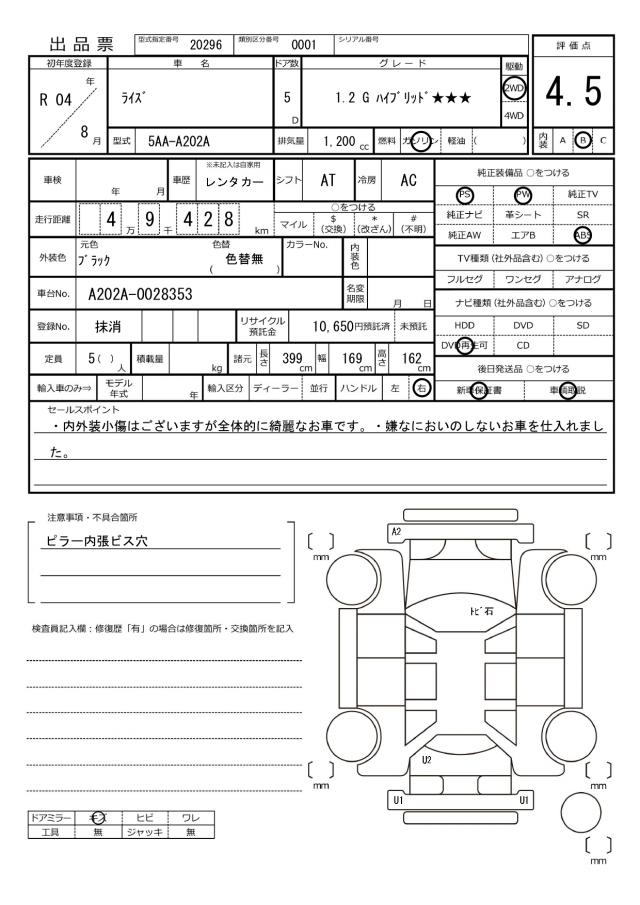 出品票
型式指定番号 20296 類別区分番号 0001 シリアル番号
評価点
4.5
内装 A B C
初年度登録 車名 ドア数 グレード 駆動
R 04 年 8 月
ﾗｲｽﾞ
5 D
1.2 G ﾊｲﾌﾞﾘｯﾄﾞ★★★
2WD
4WD
型式 5AA-A202A 排気量 1,200 cc 燃料 ガソリン 軽油 ( )
車検 年 月 車歴 ※未記入は自家用 レンタカー シフト AT 冷房 AC
走行距離 4 万 9 千 4 2 8 km
○をつける
マイル $(交換) *(改ざん) #(不明)
外装色 元色 ﾌﾞﾗｯｸ 色替 ( 色替無 ) カラーNo. 内装色
車台No. A202A-0028353 名変期限 月 日
登録No. 抹消 リサイクル預託金 10,650円預託済 未預託
定員 5( )人 積載量 kg 諸元 長さ 399 cm 幅 169 cm 高さ 162 cm
輸入車のみ⇒ モデル年式 年 輸入区分 ディーラー 並行 ハンドル 左 右
純正装備品 ○をつける
PS PW 純正TV
純正ナビ 革シート SR
純正AW エアB ABS
TV種類 (社外品含む) ○をつける
フルセグ ワンセグ アナログ
ナビ種類 (社外品含む) ○をつける
HDD DVD SD
DVD再生可 CD
後日発送品 ○をつける
新車保証書 車輌取説
セールスポイント
・内外装小傷はございますが全体的に綺麗なお車です。・嫌なにおいのしないお車を仕入れまし
た。
注意事項・不具合箇所
ピラー内張ビス穴
検査員記入欄：修復歴「有」の場合は修復箇所・交換箇所を記入
ドアミラー キズ ヒビ ワレ
工具 無 ジャッキ 無
A2
[ ] mm
[ ] mm
ﾄﾋﾞ石
U2
[ ] mm
[ ] mm
U1 U1
[ ] mm